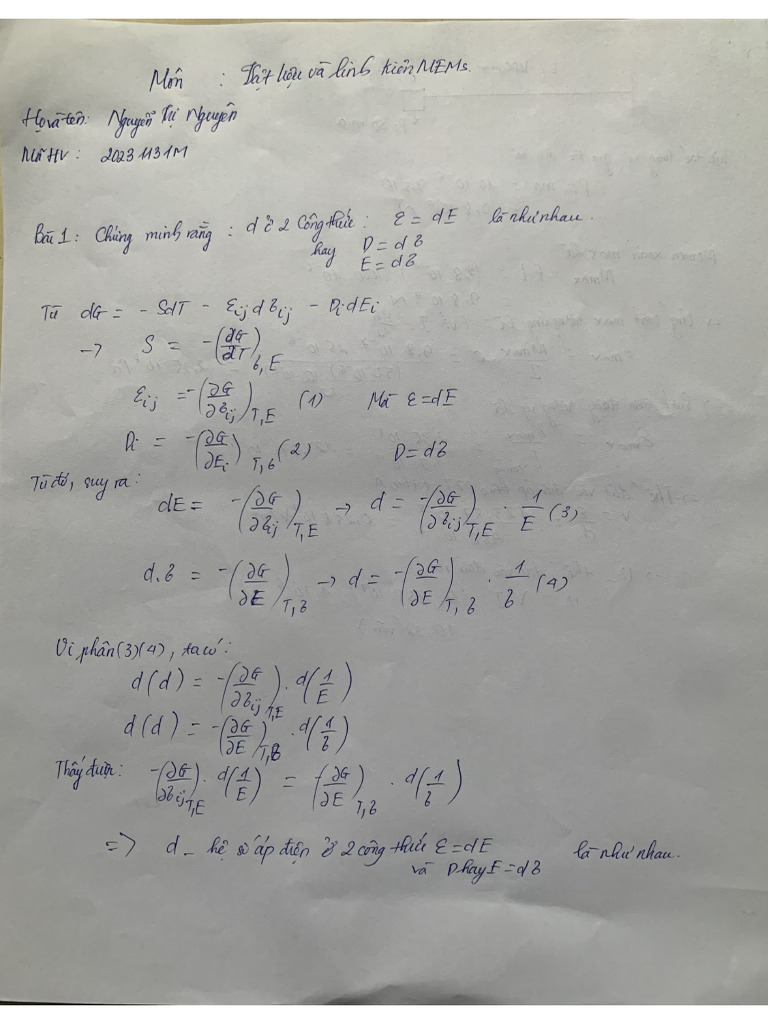 Môn : Vật liệu và linh kiện MEMs.
Họ và tên: Nguyễn Thị Nguyên
Mã HV : 20231131M
Bài 1: Chứng minh rằng : d ở 2 công thức : ε = dE là như nhau.
hay D = dσ
E = dσ
Từ dG = - SdT - εij dσij - Di dEi
→ S = -(∂G/∂T)σ,E
εij = -(∂G/∂σij)T,E (1) Mà ε = dE
Di = -(∂G/∂Ei)T,σ (2) D = dσ
Từ đó, suy ra :
dE = -(∂G/∂σij)T,E → d = -(∂G/∂σij)T,E · 1/E (3)
d.σ = -(∂G/∂E)T,σ → d = -(∂G/∂E)T,σ · 1/σ (4)
Vi phân (3)(4), ta có :
d(d) = -(∂G/∂σij)T,E · d(1/E)
d(d) = -(∂G/∂E)T,σ · d(1/σ)
Thấy được: -(∂G/∂σij)T,E · d(1/E) = -(∂G/∂E)T,σ · d(1/σ)
=> d - hệ số áp điện ở 2 công thức ε = dE là như nhau.
và D hay E = dσ